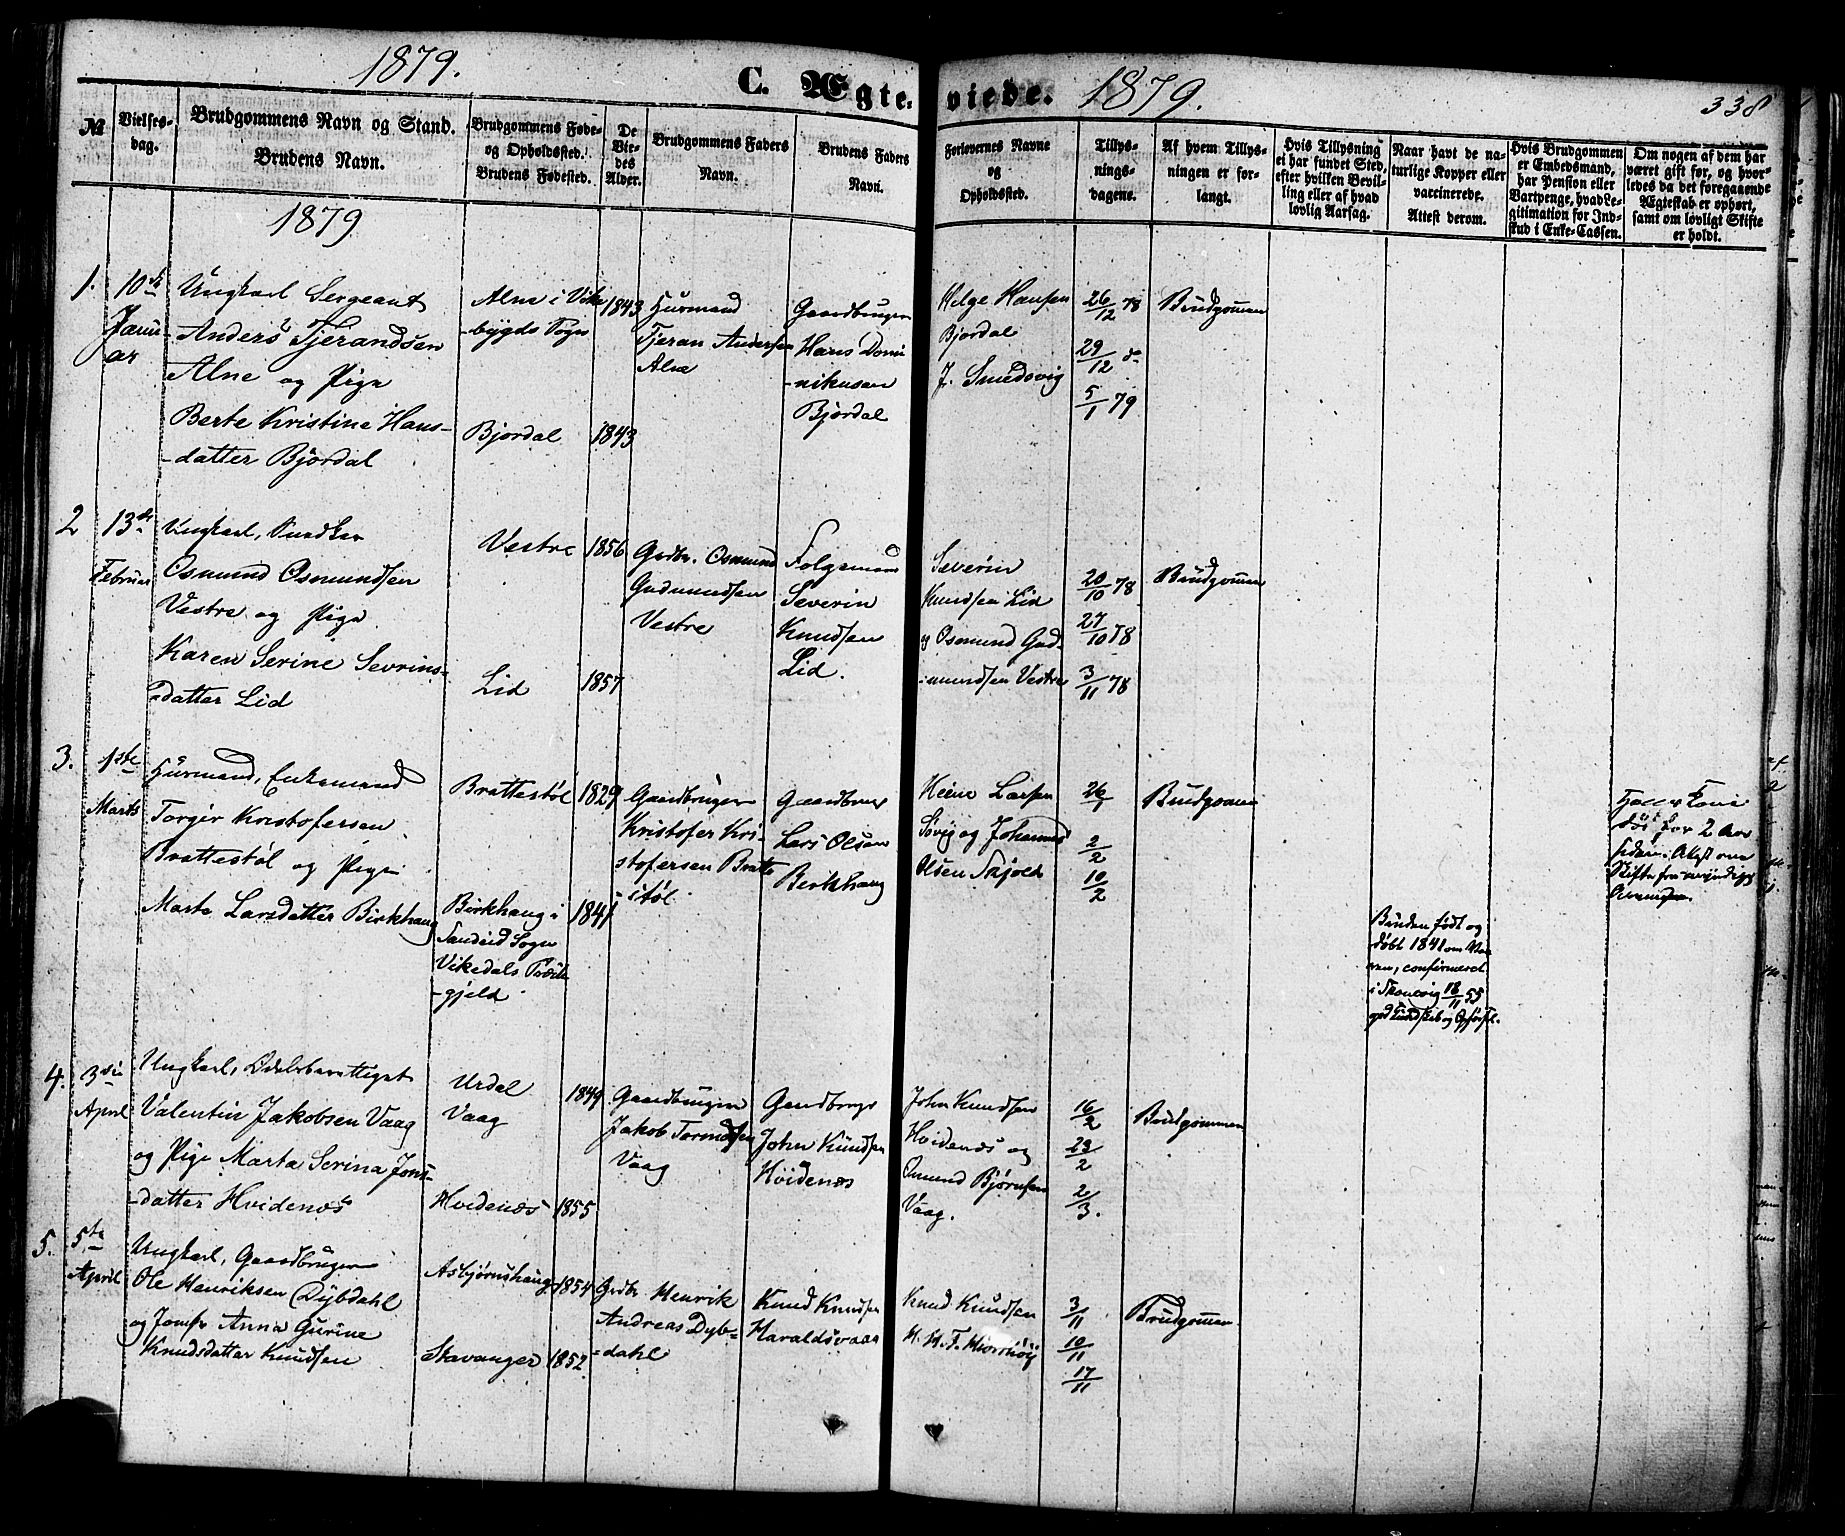 1879.
C. Ægteviede.
1879.
338
№
Vielsesdag.
Brudgommens Navn og Stand.
Brudens Navn.
Brudgommens Føde-
og Opholdssted.
Brudens Fødested.
De
Vie-
des
Alder.
Brudgommens Faders
Navn.
Brudens Faders
Navn.
Forlovernes Navne
og
Opholdssted.
Tillys-
nings-
dagene.
Af hvem Tillys-
ningen er for-
langt.
Hvis Tillysning
ei har fundet Sted,
efter hvilken Bevil-
ling eller af hvad
lovlig Aarsag.
Naar havt de na-
turlige Kopper eller
vaccinerede.
Attest derom.
Hvis Brudgommen
er Embedsmand,
har Pension eller
Vartpenge, hvad Le-
gitimation for Ind-
skud i Enke-Cassen.
Om nogen af dem har
været gift før, og hvor-
ledes da det foregaaende
Ægteskab er ophørt,
samt om lovligt Skifte
er holdt.
1879
1.
10de
Janu
ar
Ungkarl Sergeant
Anders Tjerandsen
Alne og Pige
Berte Kristine Hans-
-datter Bjordal
Alne i Vike
-bygds Sogn
Bjordal
1843
1843
Huusmand
Tjeran Andersen
Alne
Gaardbruger
Hans Domi
-nikusen
Bjordal
Helge Hansen
Bjordal
J. Smedsvig
26/12 78
29/12 do
5/1 79
Brudgommen
2
13de
Februar
Ungkarl,
Osmund Osmundsen
Vestre og Pige
Karen Serine Sevrins-
-datter Lid
Vestre
Lid
1856
1857
Grdbr. Osmund
Gudmundsen
Vestre
Folgemand
Severin
Knudsen
Lid.
Severin
Knudsen Lid
og Osmund Gud-
-mundsen Vestre
20/10 78
27/10 78
3/11 78
Brudgommen
3.
1ste
Marts
Huusmand, Enkemand
Torgir Kristofersen
Brattestøl og Pige
Marta Larsdatter Birkhaug
Brattestøl
Birkhaug i
Sandeid Sogn
Vikedals Præste
-gjeld
1829
1841
Gaardbruger
Kristofer Kri-
stofersen Bratte
-støl
Gaardbrug
Lars Olsen
Berkhaug
Heine Larsen
Søvig og Johannes
Olsen Skjold
26/1
2/2
10/2
Brudgommen
Bruden født og
døbt 1841 om Vaa
ren, confirmeret
i Skonevig 18/11 55
god Kundskab og Opførsel.
Hans Kone
død for 2 Aar
siden.
4.
3die
April
Ungkarl, Odelsberettiget
Valentin Jakobsen Vaag
og Pige Marta Serina Jons-
-datter Hvidenæs
Urdal
Vaag
Hvidenæs
1849
1855
Gaardbruger
Jakob Tormodsen
Vaag
Gaardbrugr
John Knudsen
Hvidenæs
John Knudsen
Hvidenæs og
Osmund Bjørnsen
Vaag.
16/2
23/2
2/3.
Brudgommen
5.
5te
April
Ungkarl, Gaardbruger
Ole Henriksen Dybdahl
og Jomfr Anna Gurine
Knudsdatter Knudsen
Asbjørnshaug
Stavanger
1854
1852
Grdbr. Henrik
Andreas Dyb-
-dahl
Knud Knudsen
Haraldsvaag
Knud Knudsen
3/11
10/11
17/11
Brudgommen